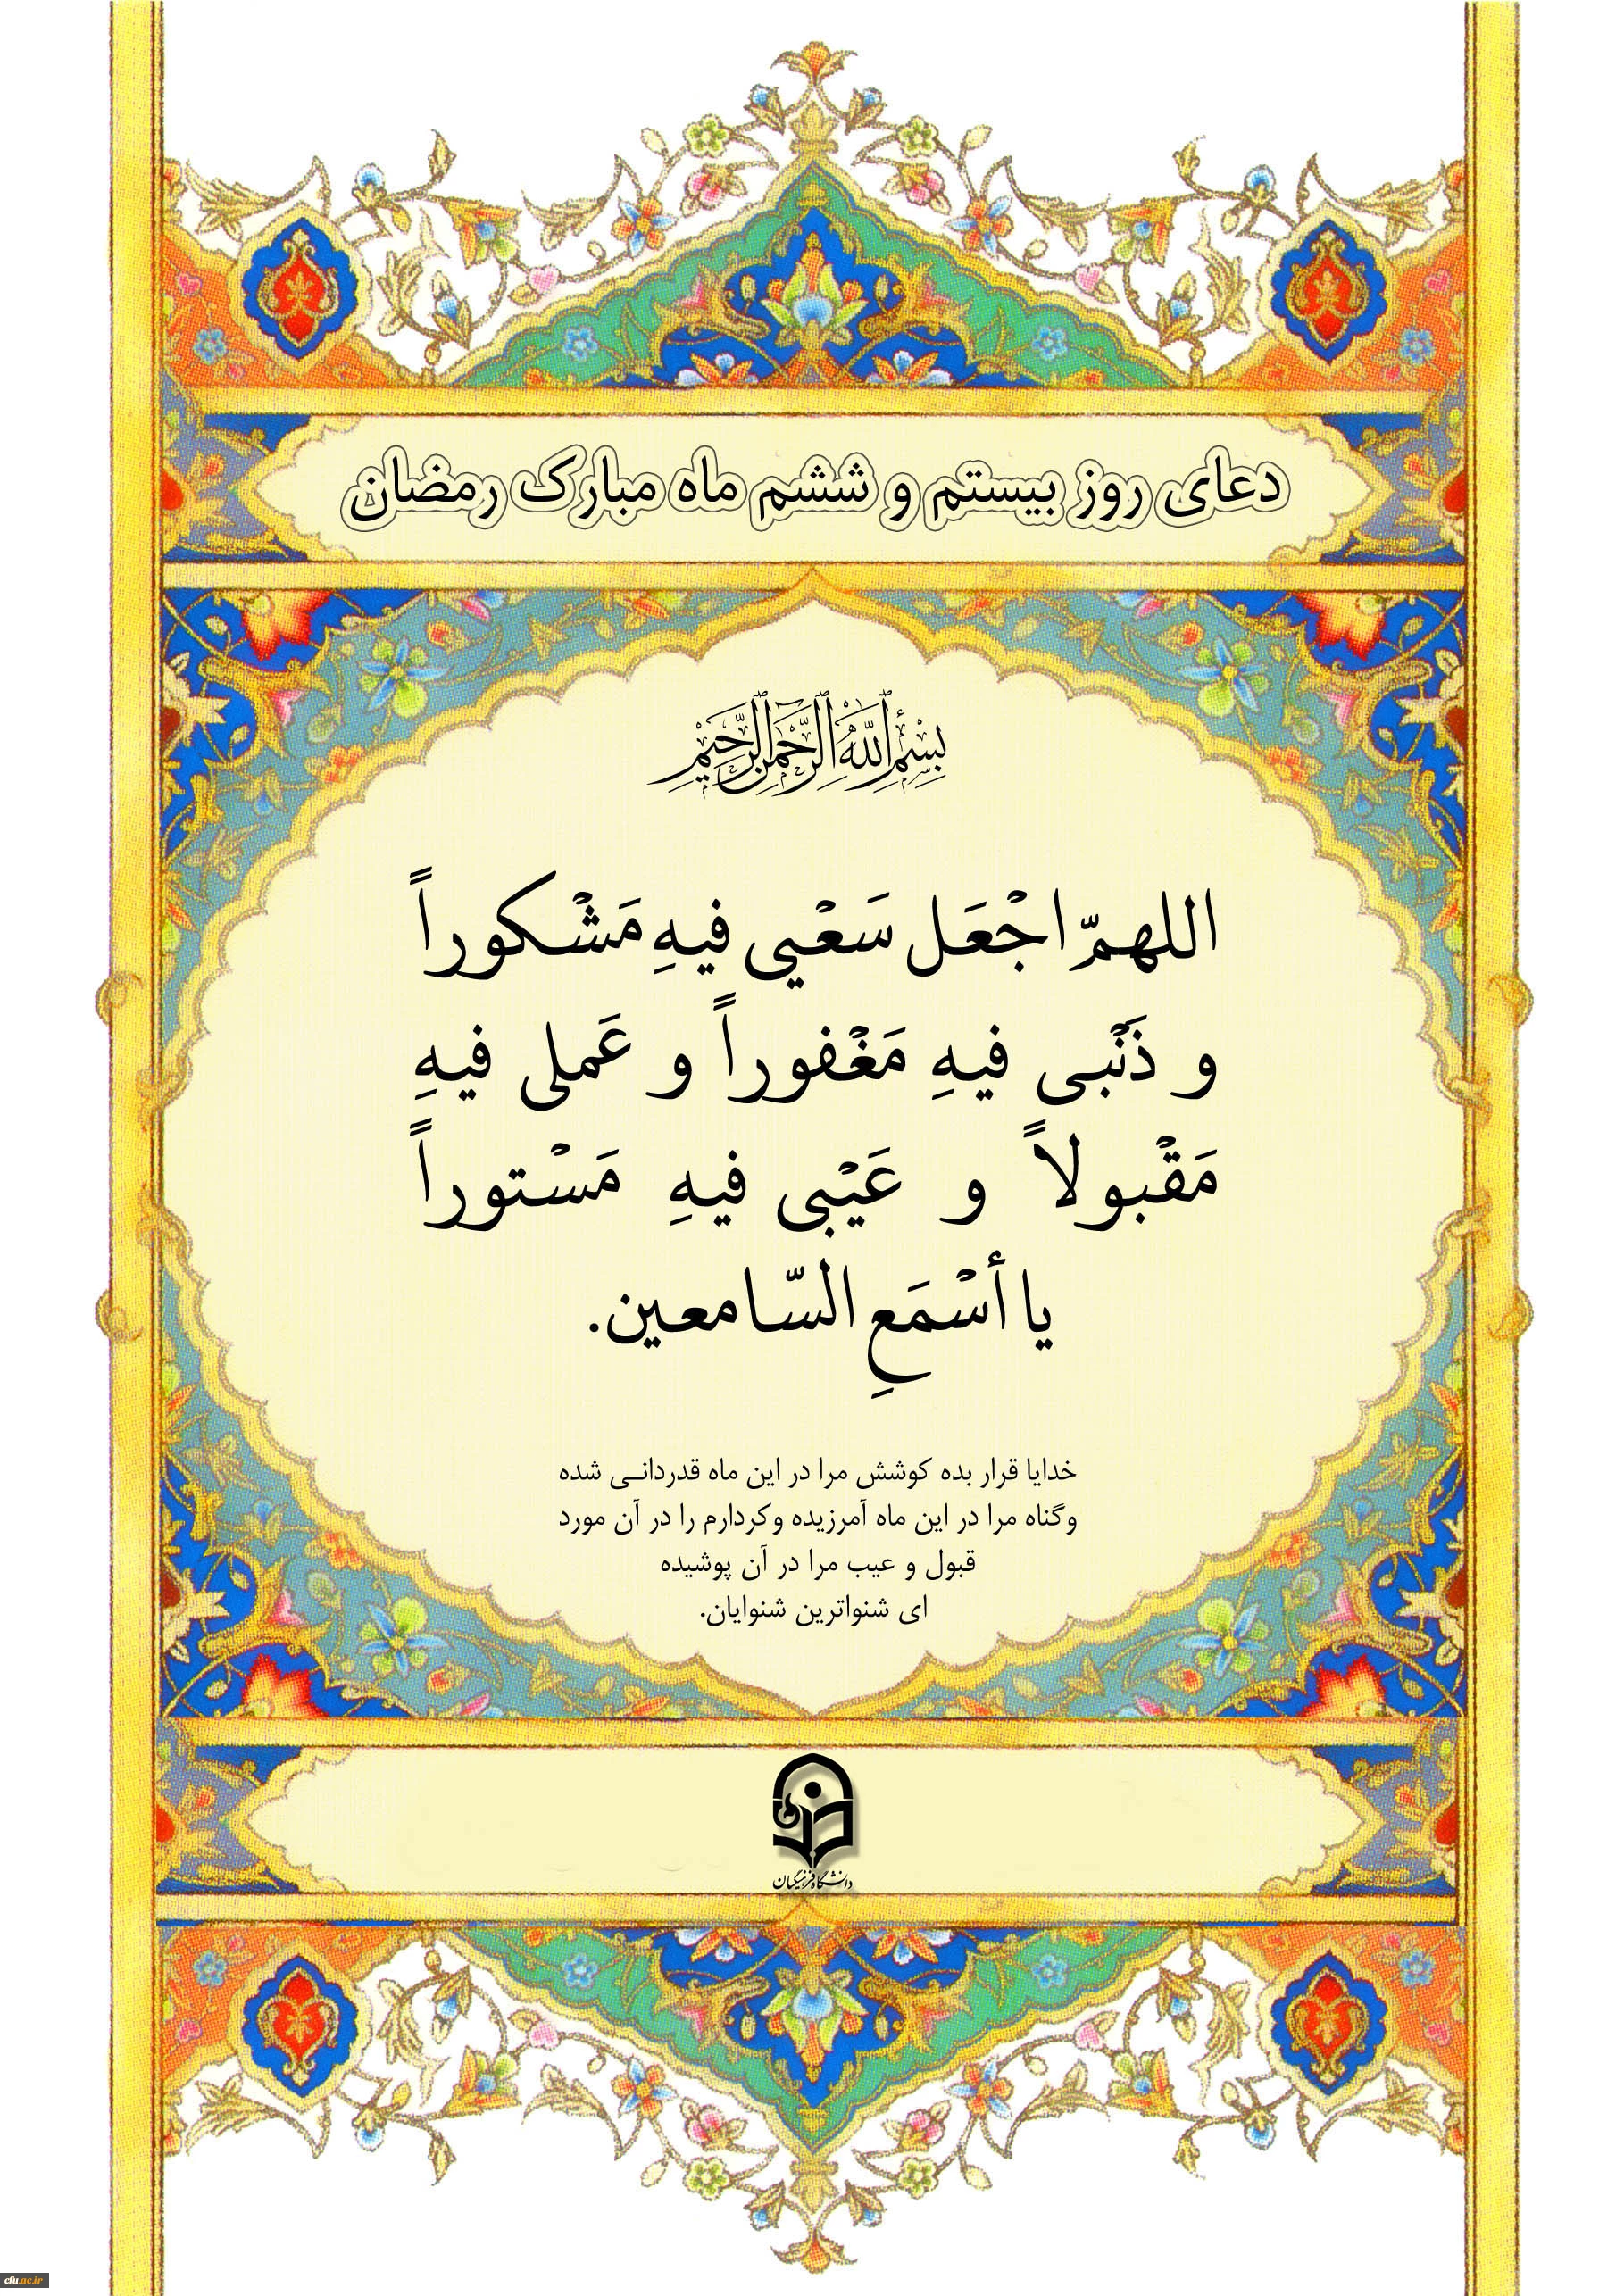 دعای روز بیستم و ششم ماه مبارک رمضان
بِسْمِ اللَّهِ الرَّحْمَنِ الرَّحِيمِ
اللهمّ اجْعَل سَعْيي فيهِ مَشْكوراً
و ذَنْبي فيهِ مَغْفوراً و عَملي فيهِ
مَقْبولاً و عَيْبي فيهِ مَسْتوراً
يا أسْمَعِ السّامعين.
خدایا قرار بده کوشش مرا در این ماه قدردانی شده
وگناه مرا در این ماه آمرزیده وکردارم را در آن مورد
قبول و عیب مرا در آن پوشیده
ای شنواترین شنوایان.
دانشگاه فرهنگیان
cfu.ac.ir